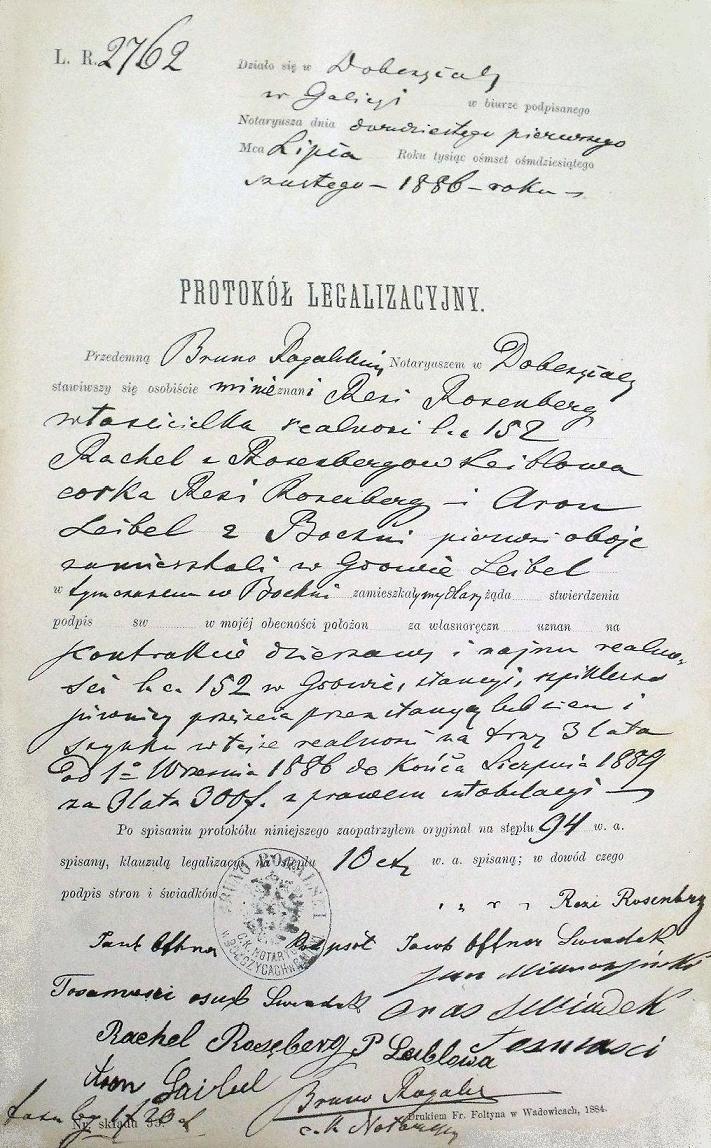 L. R. 2762
Działo się w Dobczycach
w Galicyi w biurze podpisanego
Notaryusza dnia dwudziestego pierwszego
Mca Lipca Roku tysiąc ośmset ośmdziesiątego
szóstego – 1886 – roku –
PROTOKÓŁ LEGALIZACYJNY.
Przedemną Bruno Notaryuszem w Dobczycach
stawiwszy się osobiście mi nieznani Resi Rosenberg
właścicielka realności l. c. 152
Rachel z Rosenbergow Leiblowa
corka Resi Rosenberg – i Aron
Leibel z Bochni pierwsi oboje
zamieszkali w Leibel
w tymczasem w Bochni zamieszkały żąda stwierdzenia
podpis sw w mojéj obecności położon za własnoręczn uznan na
kontrakcie dzierzawy i najmu realno-
ści l. c. 152 w stancyi,
piwnicy przez stancyą lub sieni i
szynku w tejze realności na trzy 3 lata
od 1o Września 1886 do Końca Sierpnia 1889
za 3 lata 300 f. z prawem intabulacyi –
Po spisaniu protokółu niniejszego zaopatrzyłem oryginał na stęplu 94 w. a.
spisany, klauzulą legalizacyj na stęplu 10 ct w. a. spisaną; w dowód czego
podpis stron i świadków
Rezi Rosenberg
Jacob Offner Swiadek
Jan
Tosamosci osub Swiadek oras Swiadek
Rachel Rosęberg P Leiblowa Tosamosci
Aron Laibel
Bruno
Nr. składu 55. c. k. Notaryusz Drukiem Fr. Foltyna w Wadowicach, 1884.